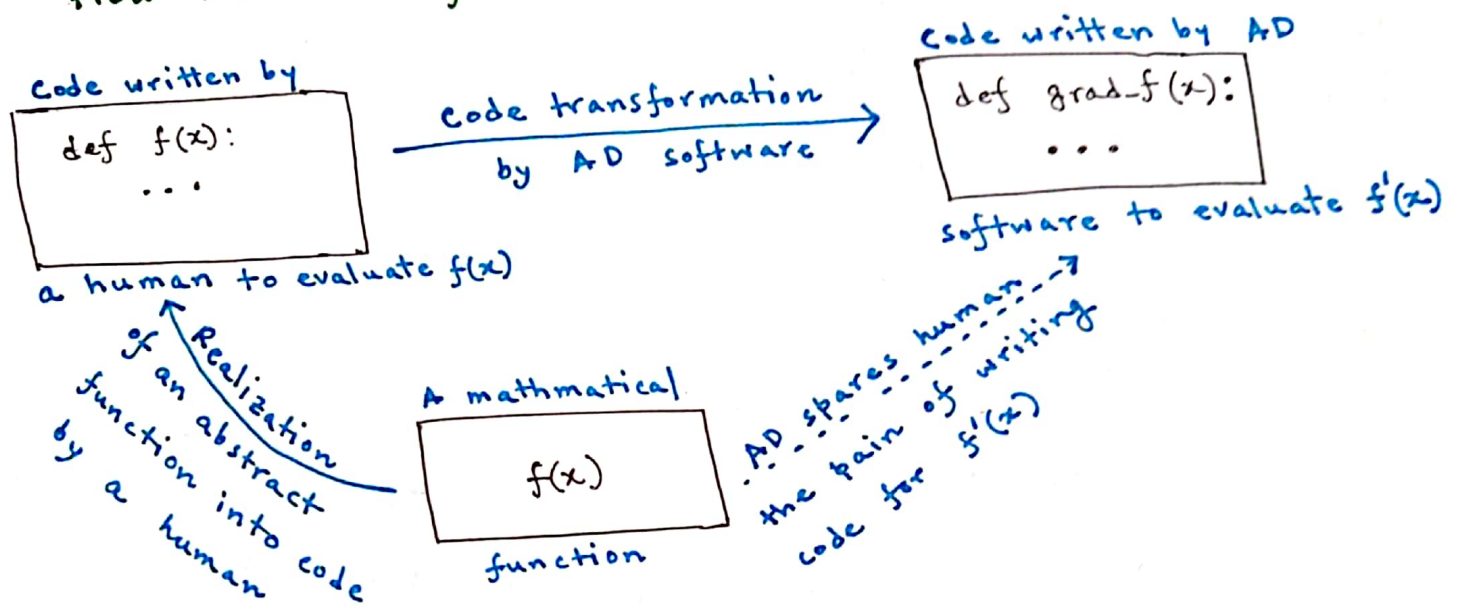 Code written by
def f(x):
...
a human to evaluate f(x)
code transformation
by AD software
Code written by AD
def grad_f(x):
...
software to evaluate f'(x)
Realization
of an abstract
function into code
by a human
A mathmatical
f(x)
function
AD spares human
the pain of writing
code for f'(x)